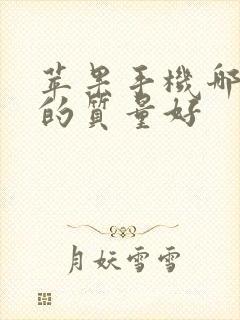 苹果手機哪
的質量好
月妖雪雪